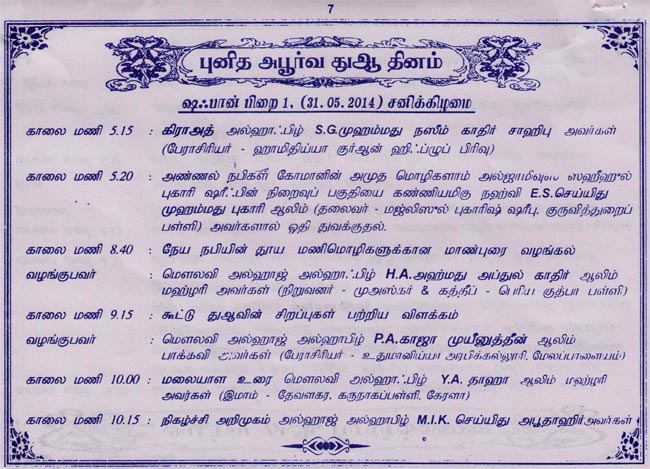 7
புனித அபூர்வ துஆ தினம்
ஷஃபான் பிறை 1, (31.05.2014) சனிக்கிழமை
காலை மணி 5.15 : கிராஅத் அல்ஹாஃபிழ் S.G.முஹம்மது நஸீம் காதிர் சாஹிபு அவர்கள்
(பேராசிரியர் - ஹாமிதிய்யா குர்ஆன் ஹிஃப்ழுப் பிரிவு)
காலை மணி 5.20 : அண்ணல் நபிகள் கோமானின் அமுத மொழிகளாம் அல்ஜாமிவுஸ் ஸஹீஹுல்
புகாரி ஷரீஃபின் நிறைவுப் பகுதியை கண்ணியமிகு நஹ்வி E.S.செய்யிது
முஹம்மது புகாரி ஆலிம் (தலைவர் - மஜ்லிஸுல் புகாரிஷ் ஷரீபு, குருவித்துறைப்
பள்ளி) அவர்களால் ஓதி துவக்குதல்.
காலை மணி 8.40 : நேய நபியின் தூய மணிமொழிகளுக்கான மாண்புரை வழங்கல்
வழங்குபவர் : மௌலவி அல்ஹாஜ் அல்ஹாஃபிழ் H.A.அஹ்மது அப்துல் காதிர் ஆலிம்
மஹ்ழரி அவர்கள் (நிறுவனர் - முஅஸ்கர் & கத்தீப் - பெரிய குத்பா பள்ளி)
காலை மணி 9.15 : கூட்டு துஆவின் சிறப்புகள் பற்றிய விளக்கம்
வழங்குபவர் : மௌலவி அல்ஹாஜ் அல்ஹாபிழ் P.A.காஜா முயீனுத்தீன் ஆலிம்
பாக்கவி அவர்கள் (பேராசிரியர் - உதுமானிய்யா அரபிக்கல்லூரி, மேலப்பாளையம்)
காலை மணி 10.00 : மலையாள உரை மௌலவி அல்ஹாஃபிழ் Y.A. தாஹா ஆலிம் மஹ்ழரி
அவர்கள் (இமாம் - தேவளகர, கருநாகப்பள்ளி, கேரளா)
காலை மணி 10.15 : நிகழ்ச்சி அறிமுகம் அல்ஹாஜ் அல்ஹாபிழ் M.I.K. செய்யிது அபூதாஹிர் அவர்கள்